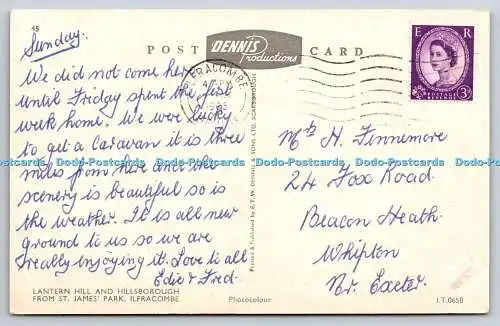 45
Sunday.
POST
DENNIS
Productions
CARD
ILFRACOMBE
E R
POSTAGE
3D
We did not come here
until Friday spent the first
week home. We were lucky
to get a Caravan it is three
miles from here and the
scenery is beautiful so is
the weather. It is all new
ground to us so we are
really enjoying it. Love to all
Edie & Fred.
LANTERN HILL AND HILLSBOROUGH
FROM ST. JAMES' PARK, ILFRACOMBE
Printed & Published by E.T.W. DENNIS & SONS LTD. SCARBOROUGH
Photocolour
Mrs H. Finnemore
24 Fox Road.
Beacon Heath.
Whipton
Nr. Exeter.
I.T.065B
Dodo-Postcards Dodo-Postcards Dodo-Postcards Dodo-Postcards Dodo-Postcards Dodo-Postcards